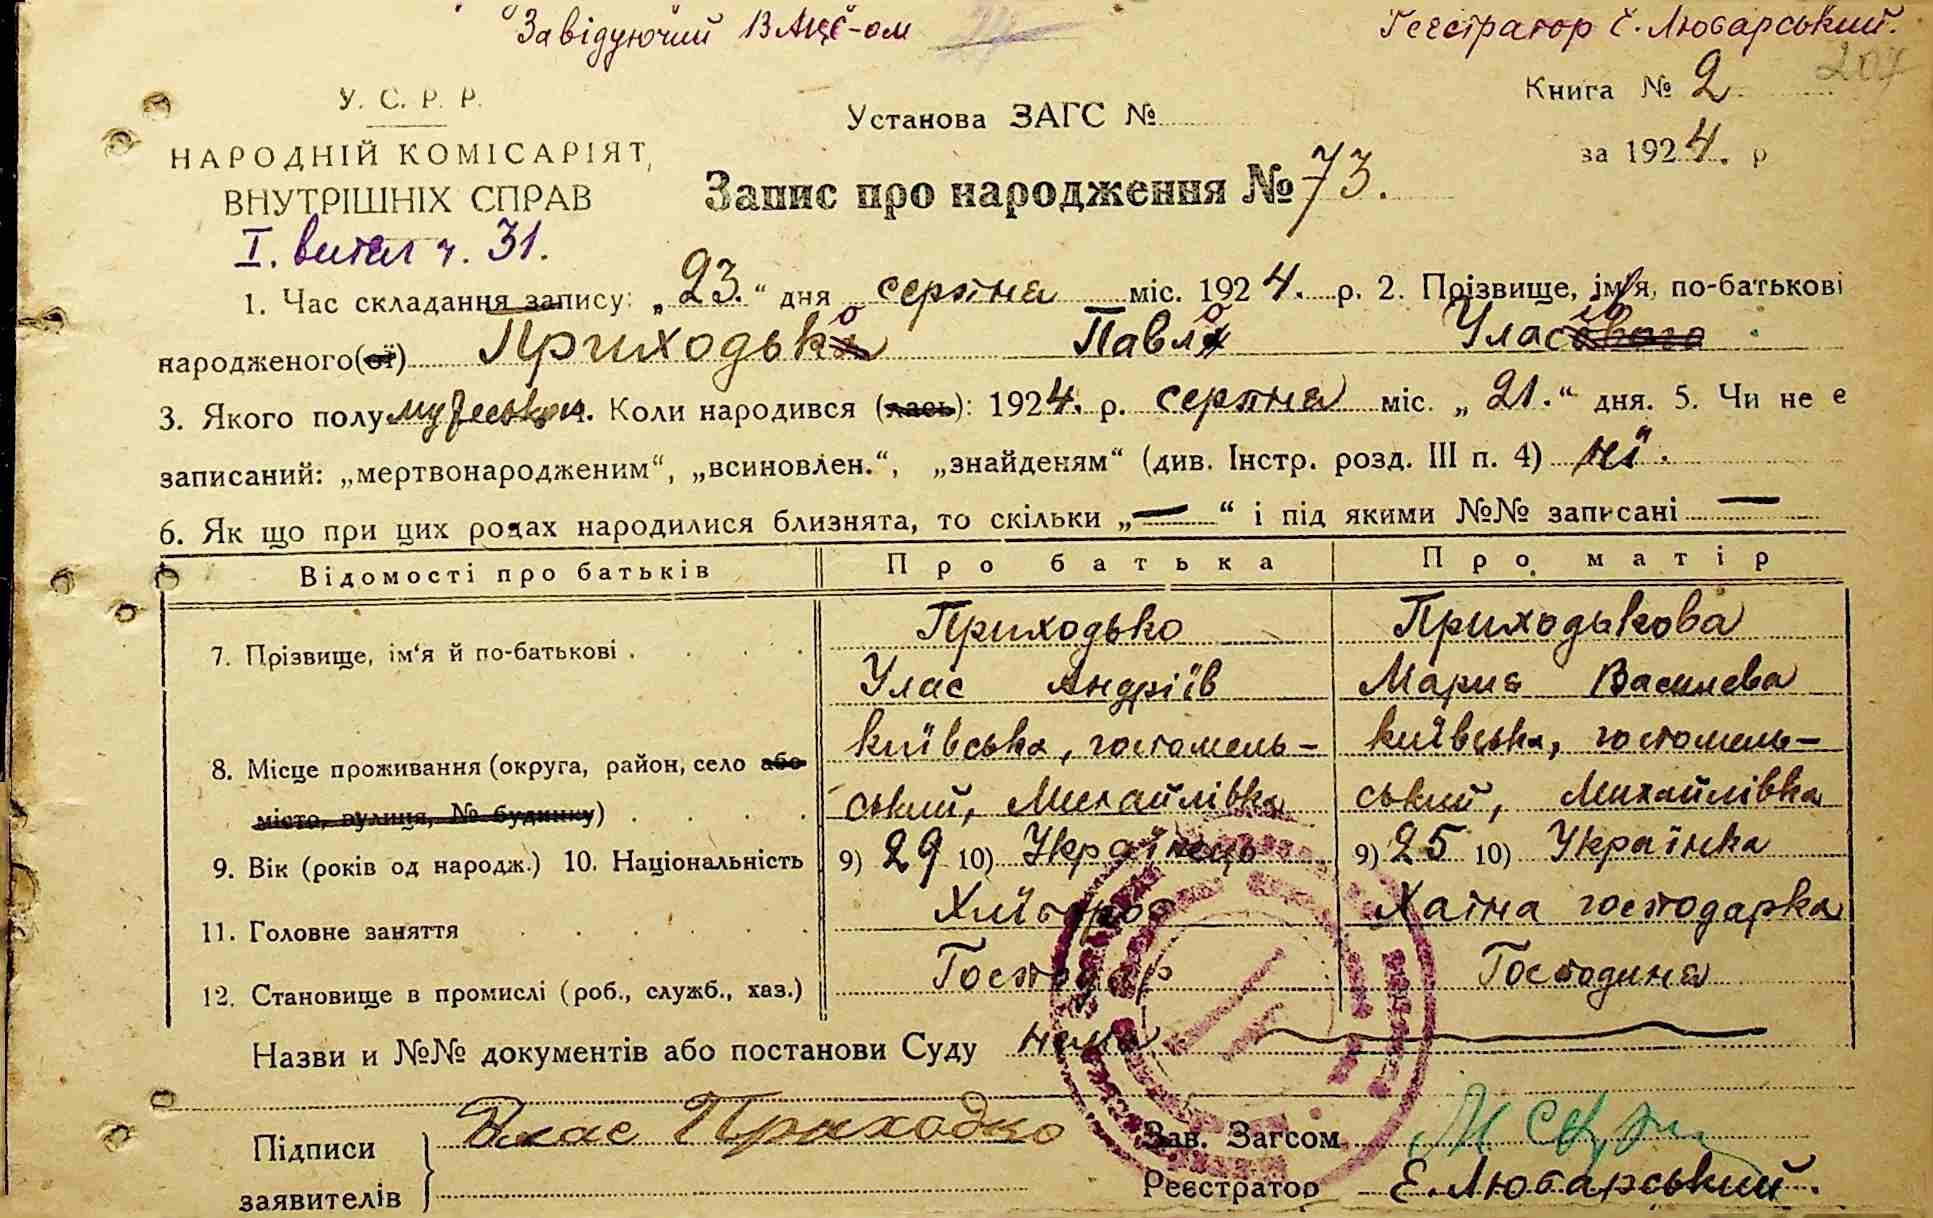 Завідуючий ВАЦС-ом Реєстратор Є. Любарський.
207
У. С. Р. Р.
НАРОДНІЙ КОМІСАРІЯТ
ВНУТРІШНІХ СПРАВ
Установа ЗАГС №
Книга № 2
за 1924. р
Запис про народження № 73.
I. витяг ч. 31.
1. Час складання запису: „23.“ дня серпня міс. 1924. р. 2. Прізвище, ім'я, по-батькові
народженого(ої) Приходько Павло Уласів
3. Якого полу мужеськ. Коли народився (лась): 1924. р. серпня міс. „21.“ дня. 5. Чи не є
записаний: „мертвонародженим“, „всиновлен.“, „знайденям“ (див. Інстр. розд. III п. 4) ні.
6. Як що при цих родах народилися близнята, то скільки „—“ і під якими №№ записані —
Відомості про батьків Про батька Про матір
7. Прізвище, ім'я й по-батькові . Приходько Приходькова
Улас Андріїв Мария Василева
8. Місце проживання (округа, район, село або київська, гостомель- київська, гостомель-
місто, вулиця, № будинку) ський, Михайлівка ський, Михайлівка
9. Вік (років од народж.) 10. Національність 9) 29 10) Українець 9) 25 10) Українка
11. Головне заняття Хлібороб Хатна господарка
12. Становище в промислі (роб., служб., хаз.) Господар Господиня
Назви и №№ документів або постанови Суду нема
Підписи Влас Приходко Зав. Загсом
заявителів Реєстратор Є. Любарський.